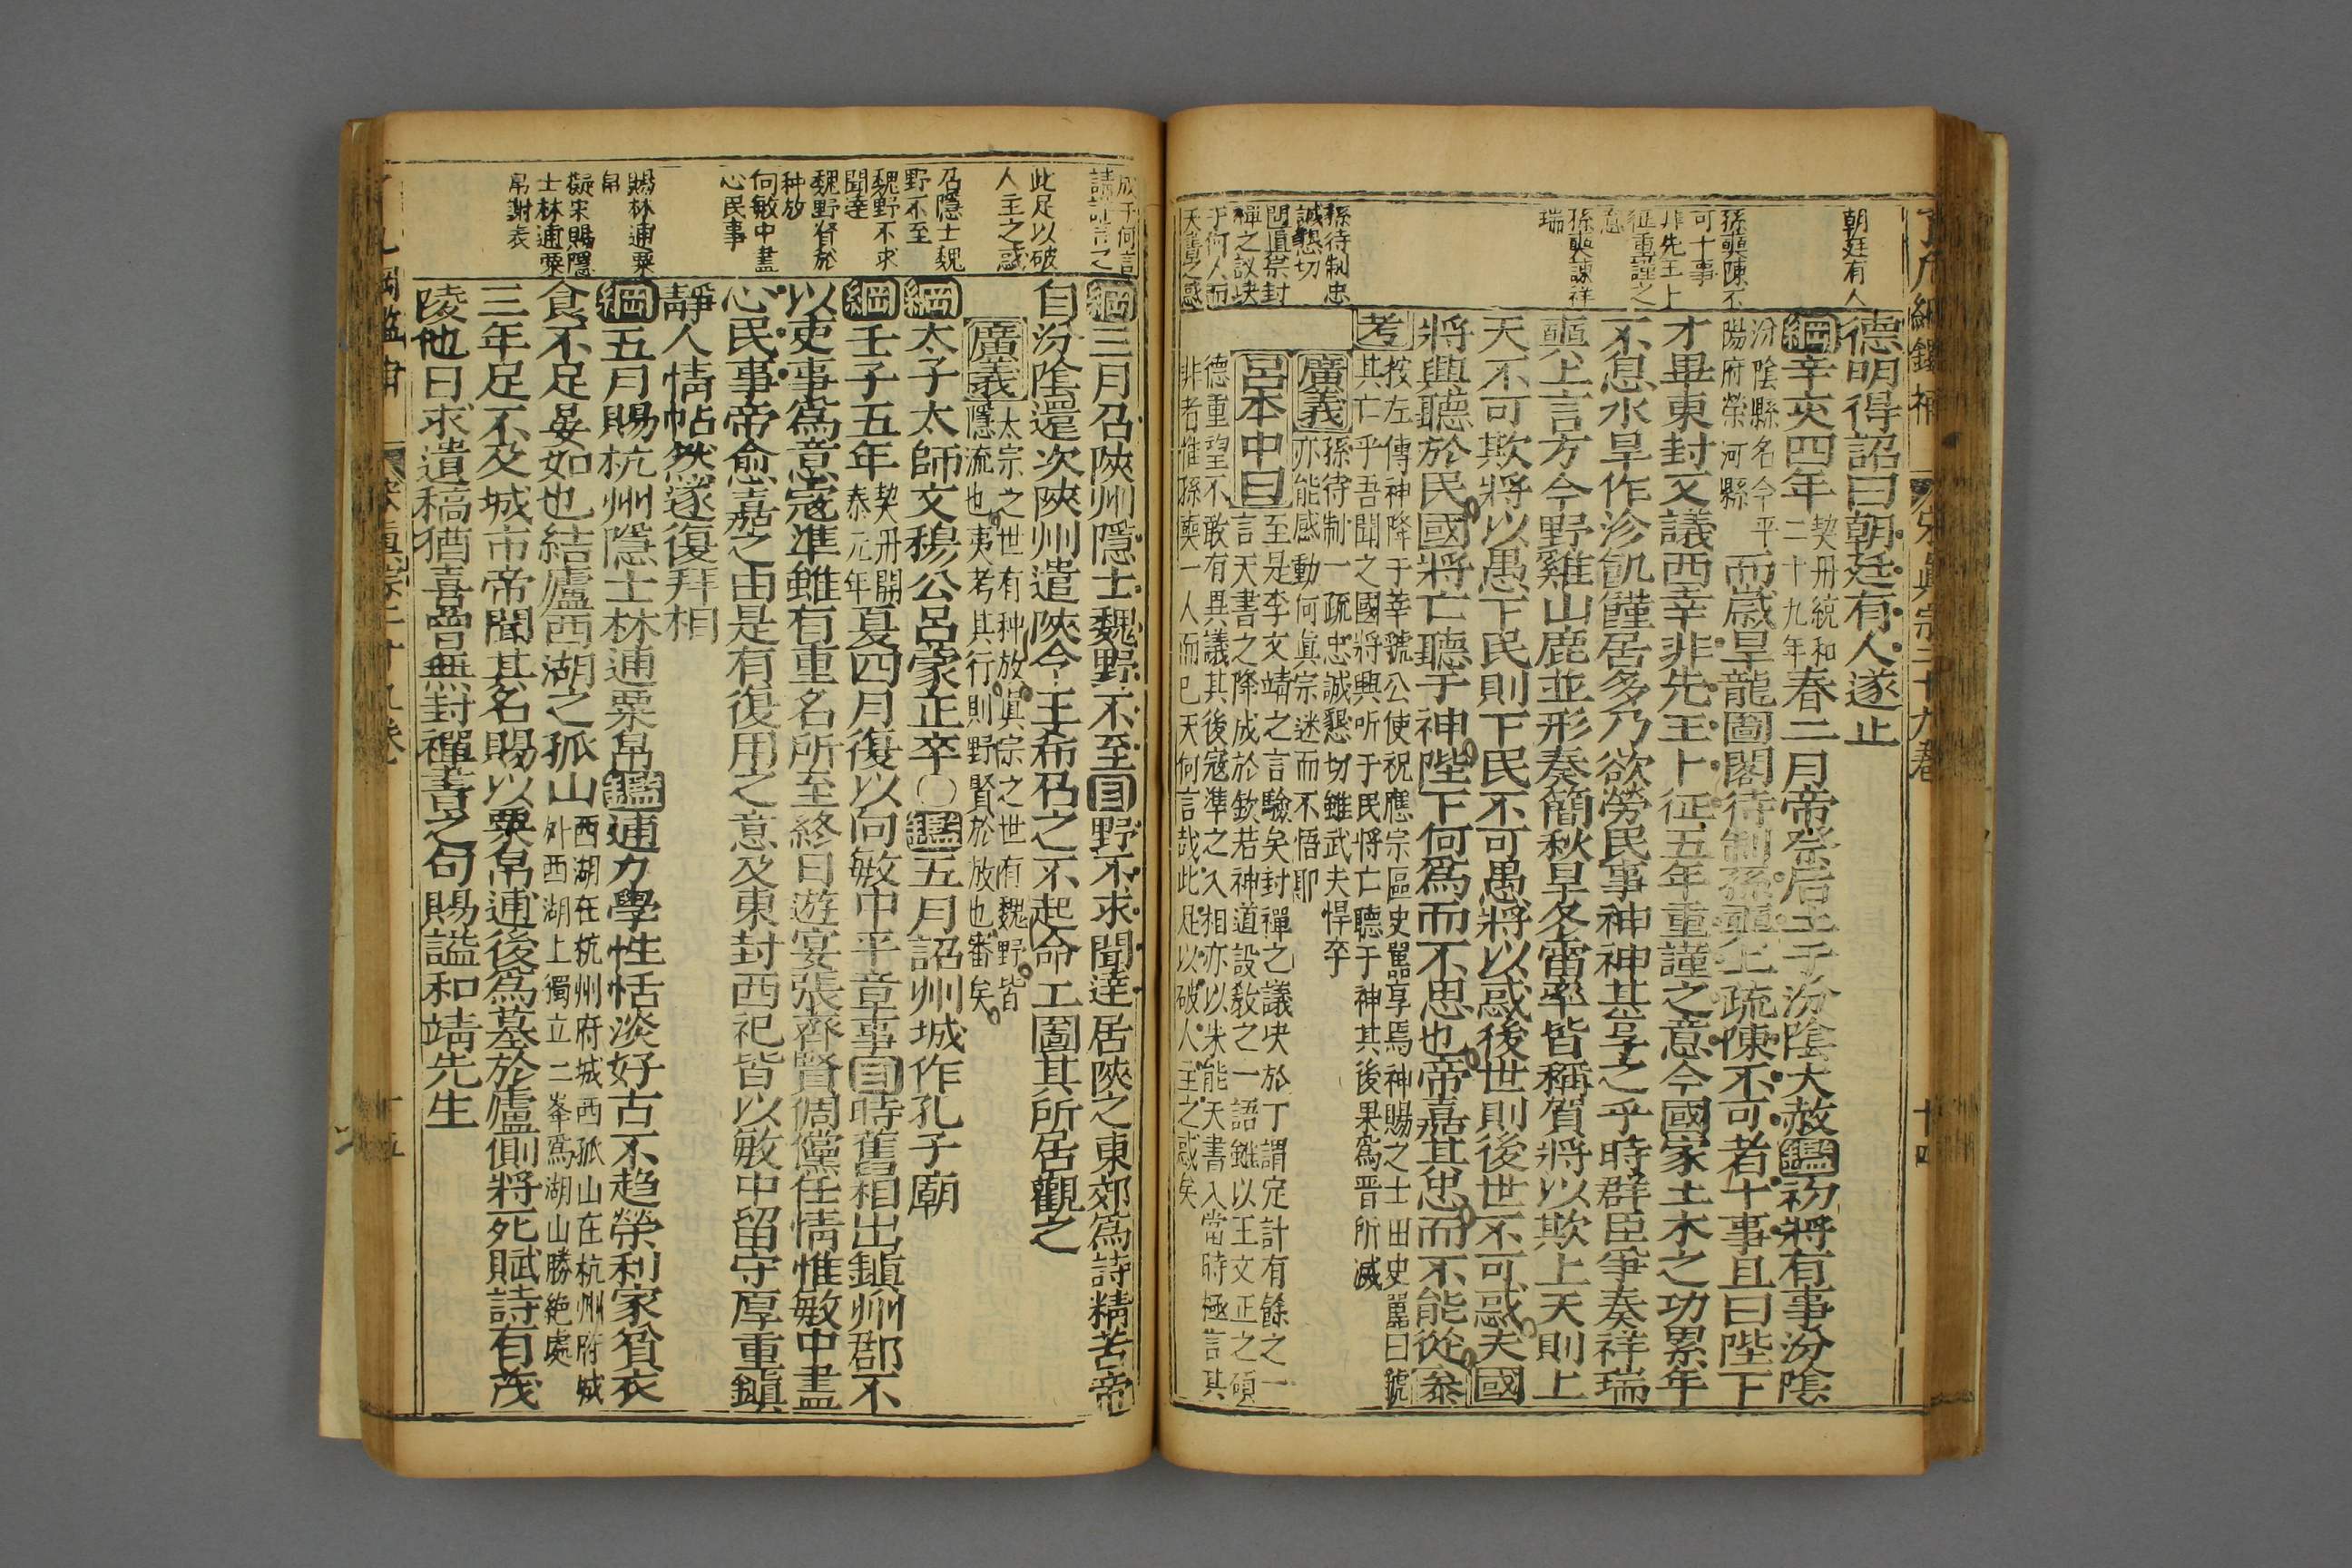 了凡綱鑑補 宋真宗二十九卷 十四
朝廷有人
孫奭陳不
可十事
非先王上
征重謹之
意
孫奭諫祥
瑞
孫待制忠
誠懇切
呂直禁封
禪之議決
乎何人而
天書之惑
德明得詔曰朝廷有人遂止
綱辛亥四年
契丹統和
二十九年
春二月帝祭后土于汾陰大赦鑑初將有事汾陰
汾陰縣名今平
陽府榮河縣
而歲旱龍圖閣待制孫奭上疏陳不可者十事且曰陛下
才畢東封又議西幸非先王卜征五年重謹之意今國家土木之功累年
不息水旱作沴飢饉居多乃欲勞民事神神其享之乎時群臣爭奏祥瑞
奭上言方今野雞山鹿並形奏簡秋旱冬雷率皆稱賀將以欺上天則上
天不可欺將以愚下民則下民不可愚將以惑後世則後世不可惑夫國
將興聽於民國將亡聽于神陛下何爲而不思也帝嘉其忠而不能從參
考
按左傳神降于莘虢公使祝應宗區史嚚享焉神賜之土田史嚚曰虢
其亡乎吾聞之國將興听于民將亡聽于神其後果爲晋所滅
廣義
孫待制一疏忠誠懇切雖武夫悍卒
亦能感動何真宗迷而不悟耶
呂本中曰
至是李文靖之言驗矣封禪之議決於丁謂定計有餘之一
言天書之降成於欽若神道設教之一語雖以王文正之碩
德重望不敢有異議其後寇準之入相亦以朱能天書入當時極言其
非者惟孫奭一人而已天何言哉此足以破人主之惑矣
成于何言
請詔言之
此足以破
人主之惑
召隱士魏
野不至
魏野不求
聞達
魏野賢於
种放
向敏中盡
心民事
賜林逋粟
帛
擬宋賜隱
士林逋粟
帛謝表
綱三月召陝州隱士魏野不至目野不求聞達居陝之東郊爲詩精苦帝
自汾陰還次陝州遣陝令王希召之不起命工圖其所居觀之
廣義
太宗之世有种放眞宗之世有魏野皆
隱流也夷考其行則野賢於放也審矣
綱太子太師文穆公呂蒙正卒〇鑑五月詔州城作孔子廟
綱壬子五年
契丹開
泰元年
夏四月復以向敏中平章事目時舊相出鎮州郡不
以吏事爲意寇準雖有重名所至終日遊宴張齊賢倜儻任情惟敏中盡
心民事帝愈嘉之由是有復用之意及東封西祀皆以敏中留守厚重鎮
靜人情帖然遂復拜相
綱五月賜杭州隱士林逋粟帛鑑逋力學性恬淡好古不趋榮利家貧衣
食不足晏如也結廬西湖之孤山
西湖在杭州府城西孤山在杭州府城
外西湖上獨立一峯爲湖山勝絶處
三年足不及城市帝聞其名賜以粟帛逋後爲墓於廬側將死賦詩有茂
陵他日求遺稿猶喜曾無封禪書之句賜謚和靖先生